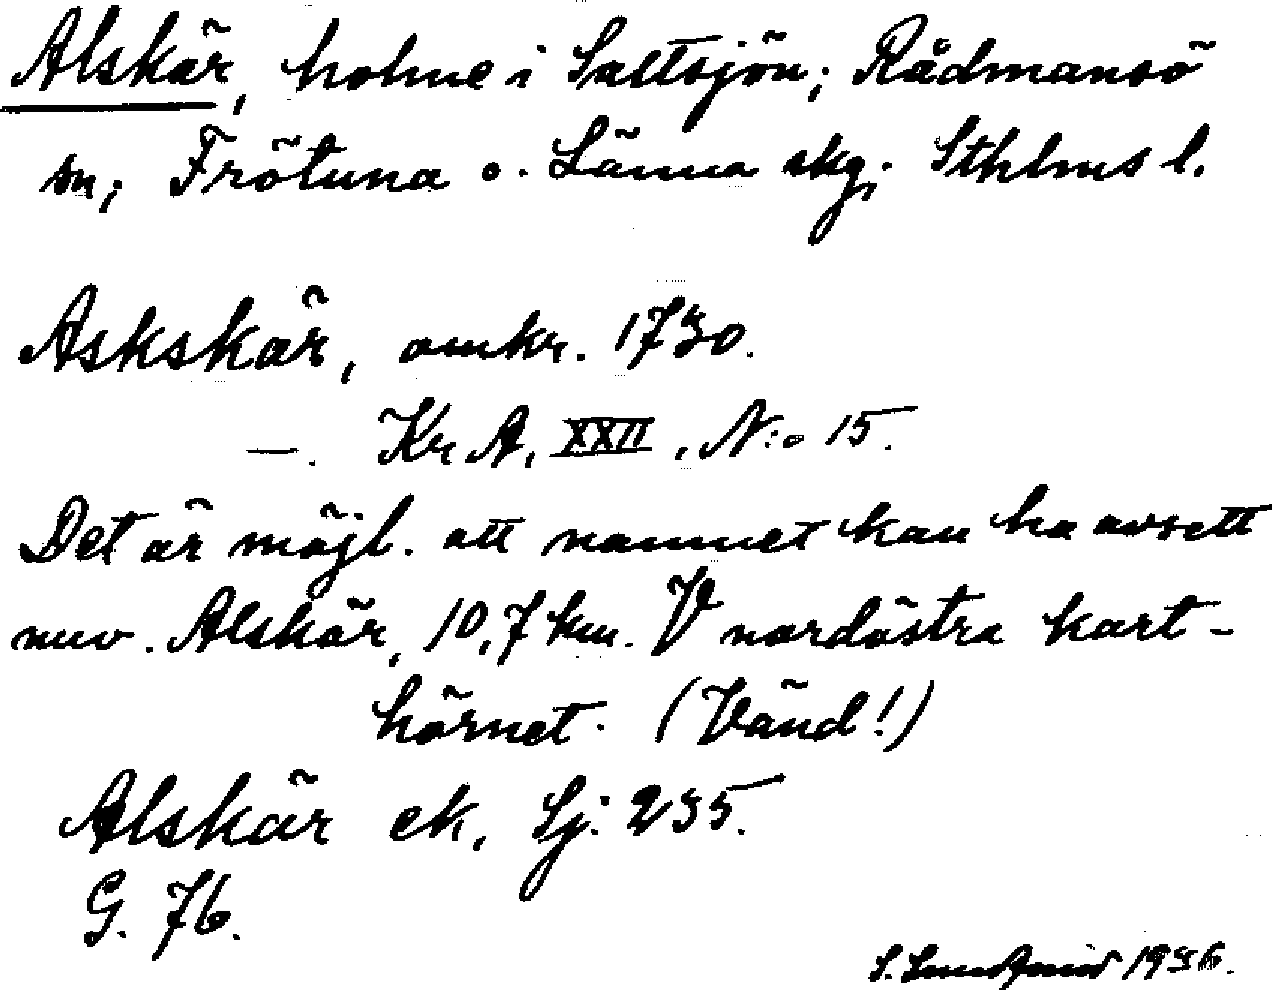 Alskär, holme i Saltsjön; Rådmansö
sn; Frötuna o. Länna skg; Sthlms l.
Askskär, omkr. 1730.
—. Kr A, XXII, N:o 15.
Det är möjl. att namnet kan ha avsett
nuv. Alskär, 10,7 km. V nordöstra kart-
hörnet. (Vänd!)
Alskär ek. Sj. 235.
G. 76.
S. 1936.